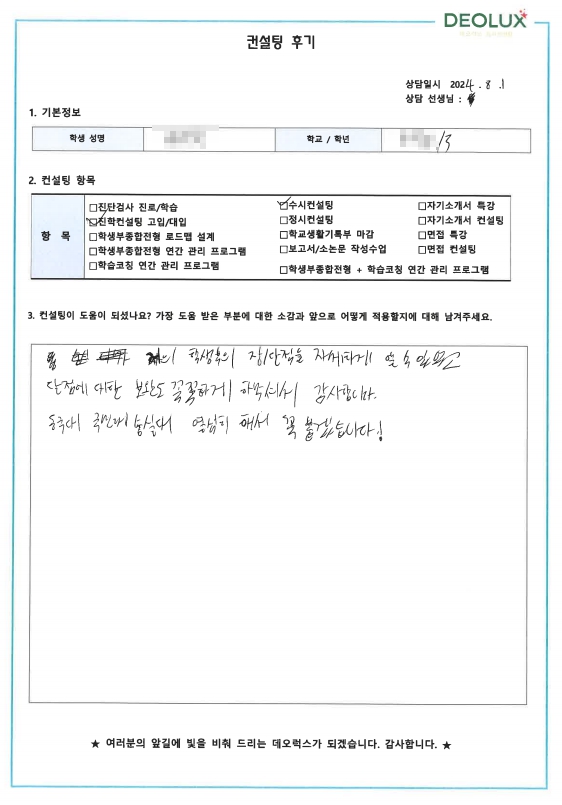 DEOLUX
컨설팅 후기
상담일시 2024.8.1
상담 선생님 :
1. 기본정보
학생 성명 학교 / 학년 /3
2. 컨설팅 항목
항 목
□진단검사 진로/학습 ☑수시컨설팅 □자기소개서 특강
☑진학컨설팅 고입/대입 □정시컨설팅 □자기소개서 컨설팅
□학생부종합전형 로드맵 설계 □학교생활기록부 마감 □면접 특강
□학생부종합전형 연간 관리 프로그램 □보고서/소논문 작성수업 □면접 컨설팅
□학습코칭 연간 관리 프로그램 □학생부종합전형 + 학습코칭 연간 관리 프로그램
3. 컨설팅이 도움이 되셨나요? 가장 도움 받은 부분에 대한 소감과 앞으로 어떻게 적용할지에 대해 남겨주세요.
저의 학생부의 장/단점을 자세하게 알 수 있었고
단점에 대한 보완도 꼼꼼하게 해주셔서 감사합니다.
동국대 국민대 숭실대 열심히 해서 꼭 붙겠습니다!
★ 여러분의 앞길에 빛을 비춰 드리는 데오럭스가 되겠습니다. 감사합니다. ★